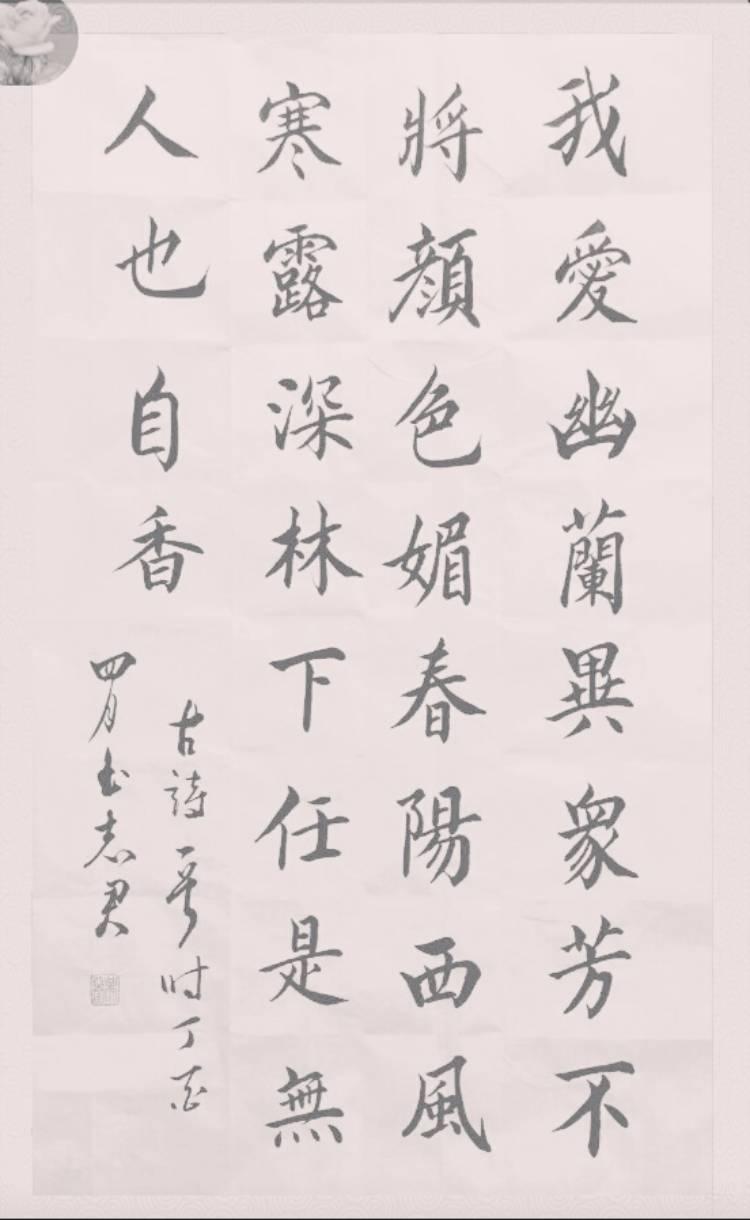 我愛幽蘭異衆芳不
將顏色媚春陽西風
寒露深林下任是無
人也自香
古詩一首时丁酉
四月书志君